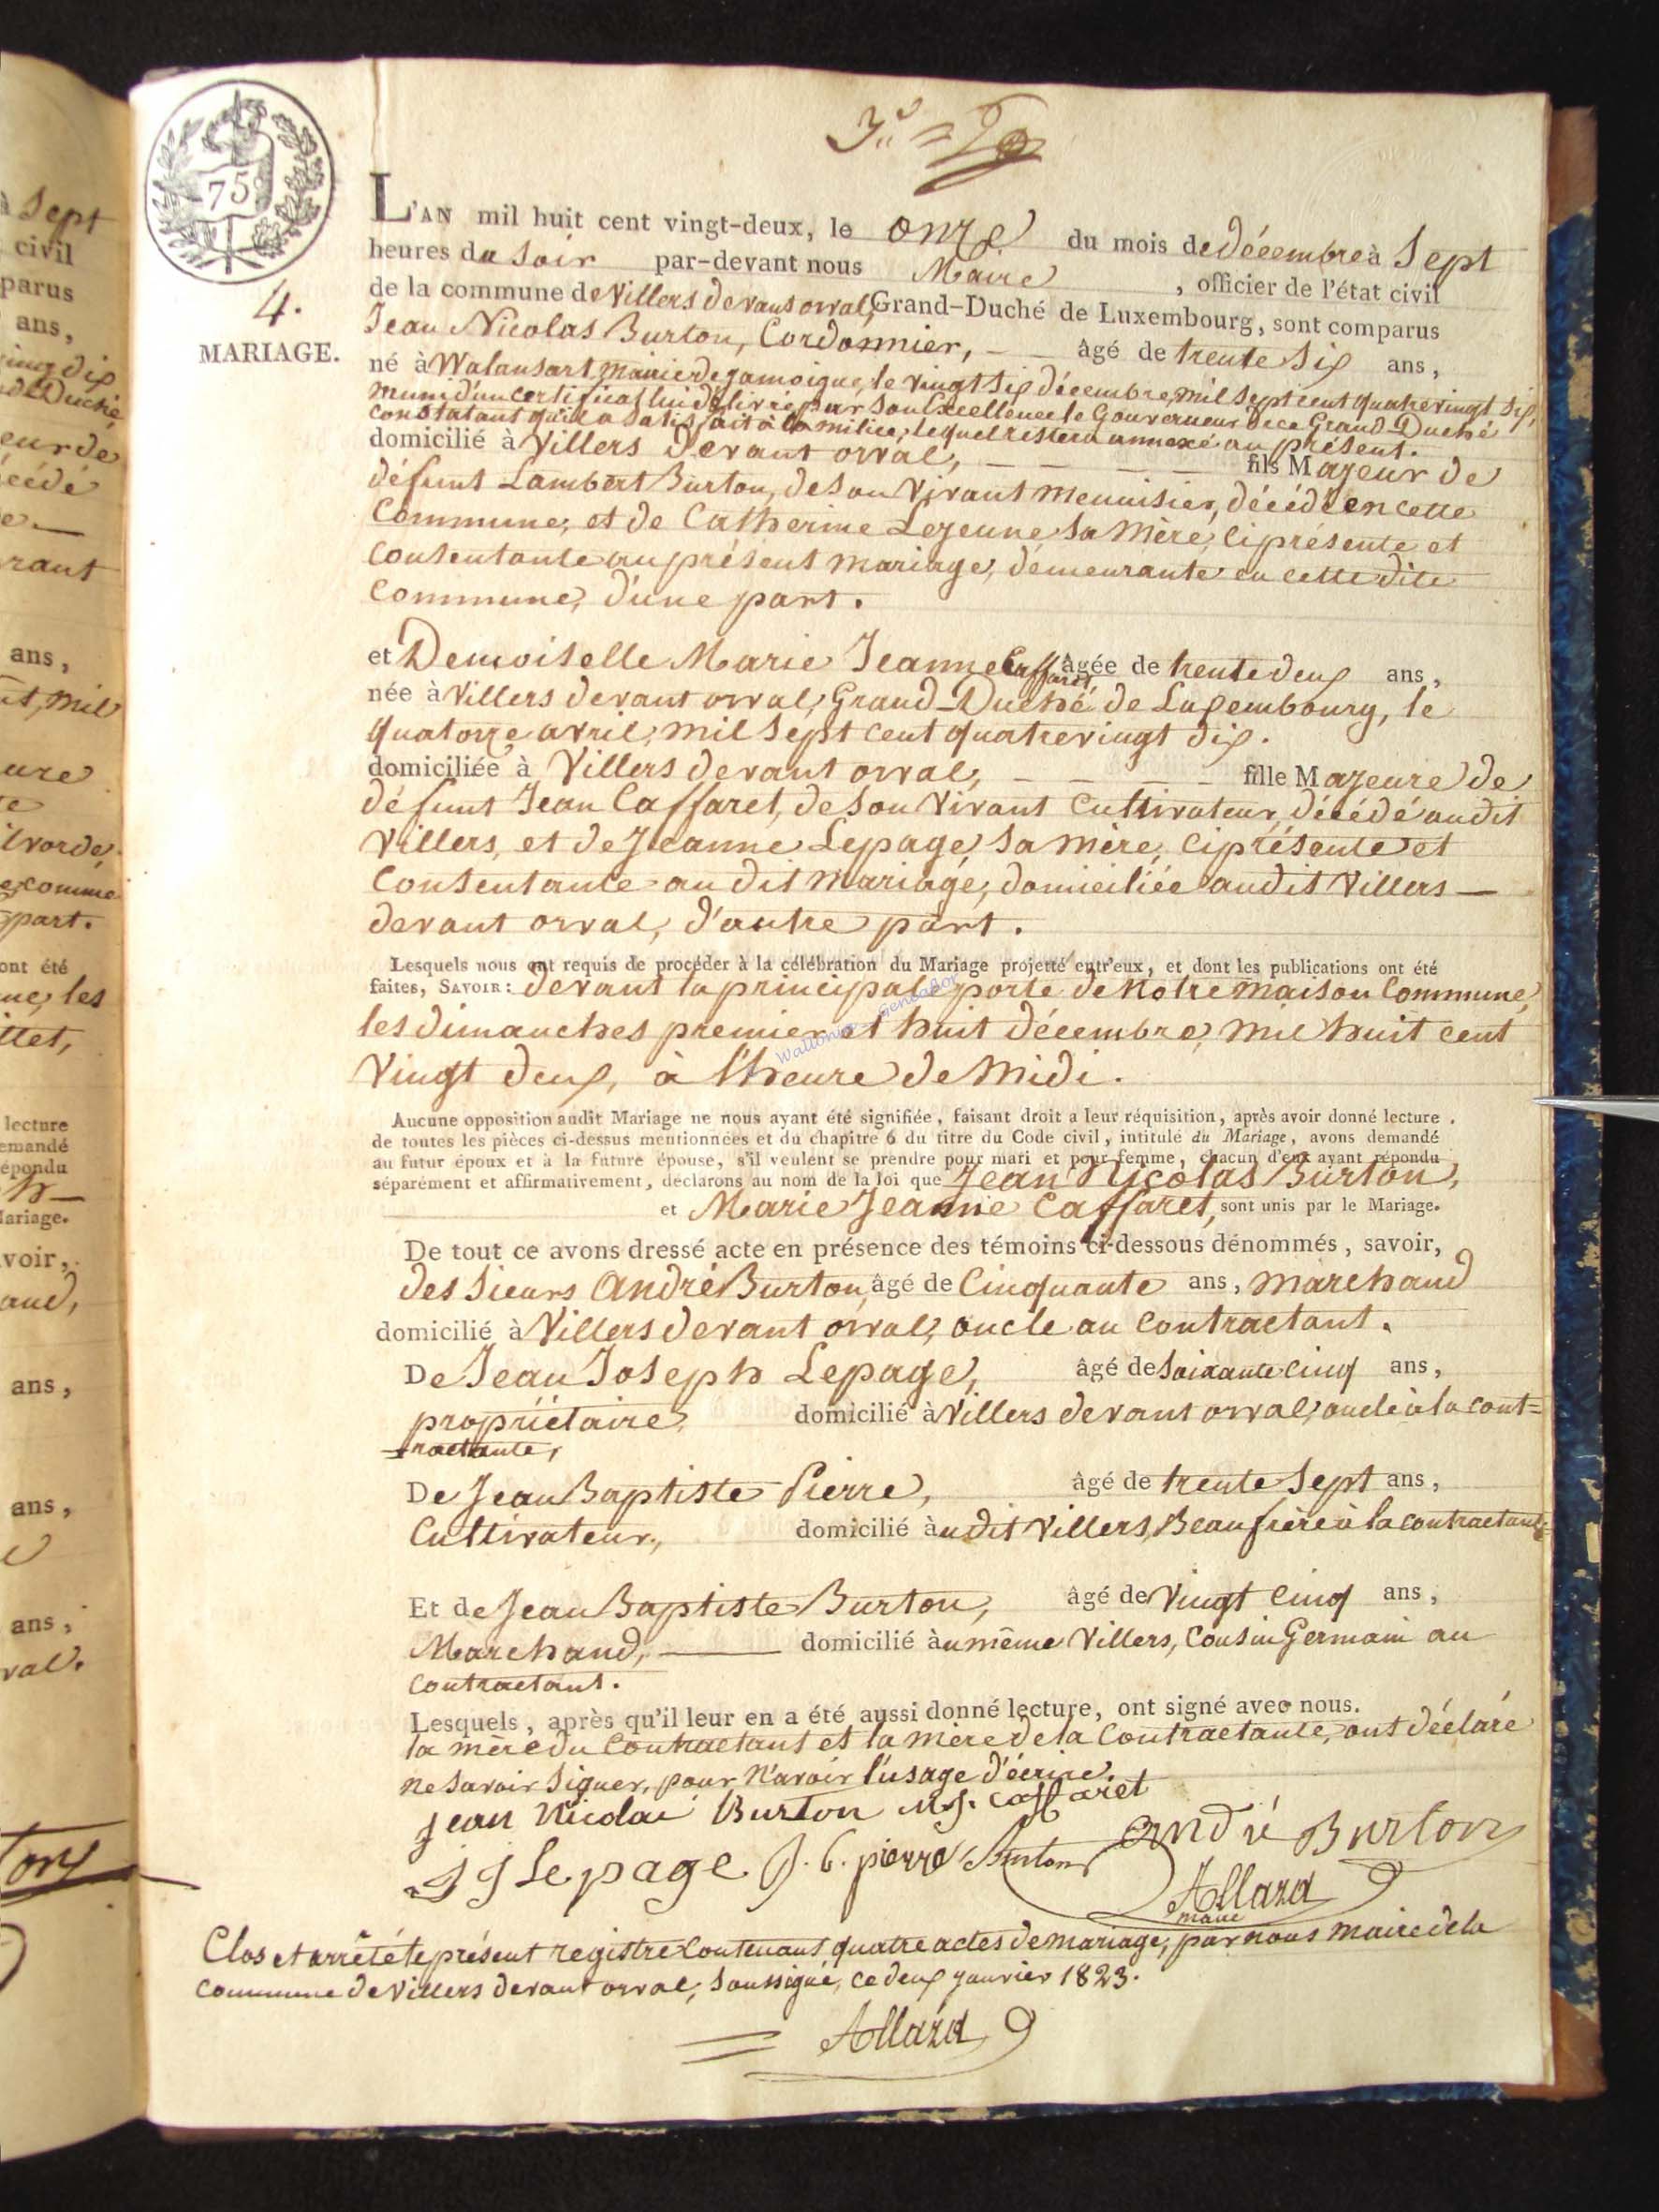 75
L'AN mil huit cent vingt-deux, le onze du mois de décembre à Sept
heures du Soir par-devant nous Maire , officier de l'état civil
de la commune de Villers devant orval, Grand-Duché de Luxembourg, sont comparus
4.
MARIAGE.
Jean Nicolas Burton, Cordonnier, — âgé de trente Six ans,
né à Walansart mairie de jamoigne, le vingt Six décembre, mil Sept cent quatre vingt Six,
muni d'un certificat lui délivré par Son Excellence le Gouverneur de ce Grand-Duché
constatant qu'il a Satisfait à la milice, lequel restera annexé au présent.
domicilié à Villers devant orval, — fils Majeur de
défunt Lambert Burton, de Son Vivant Menuisier, décédé en cette
Commune, et de Catherine Lejeune Sa Mère, ci présente et
Consentante au présent mariage, demeurante en cette dite
Commune, d'une part.
et Demoiselle Marie Jeanne Caffaret, âgée de trente deux ans,
née à Villers devant orval, Grand-Duché de Luxembourg, le
quatorze avril, mil Sept cent quatre vingt dix.
domiciliée à Villers devant orval, — fille Majeure de
défunt Jean Caffaret, de Son Vivant Cultivateur, décédé audit
Villers, et de Jeanne Lepage, Sa Mère, Ci présente et
Consentante au dit Mariage, domiciliée audit Villers —
devant orval, d'autre part.
Lesquels nous ont requis de procéder à la célébration du Mariage projetté entr'eux, et dont les publications ont été
faites, SAVOIR: devant la principale porte de Notre Maison Commune,
les dimanches premier et huit décembre, mil huit cent
Vingt deux, à l'heure de Midi.
Aucune opposition audit Mariage ne nous ayant été signifiée, faisant droit a leur réquisition, après avoir donné lecture
de toutes les pièces ci-dessus mentionnées et du chapitre 6 du titre du Code civil, intitulé du Mariage, avons demandé
au futur époux et à la future épouse, s'il veulent se prendre pour mari et pour femme, chacun d'eux ayant répondu
séparément et affirmativement, déclarons au nom de la loi que Jean Nicolas Burton,
et Marie Jeanne Caffaret, sont unis par le Mariage.
De tout ce avons dressé acte en présence des témoins ci-dessous dénommés, savoir,
des Sieurs André Burton, âgé de Cinquante ans, Marchand
domicilié à Villers devant orval, oncle au Contractant.
De Jean Joseph Lepage, âgé de Soixante cinq ans,
propriétaire, domicilié à Villers devant orval, oncle à la cont=
=ractante,
De Jean Baptiste Pierre, âgé de trente Sept ans,
Cultivateur, domicilié audit Villers, Beaufrère à la contractante
Et de Jean Baptiste Burton, âgé de Vingt Cinq ans,
Marchand, — domicilié au même Villers, Cousin Germain au
Contractant.
Lesquels, après qu'il leur en a été aussi donné lecture, ont signé avec nous.
la mère du Contractant et la mère de la Contractante, ont déclaré
ne Savoir Signer, pour N'avoir l'usage d'écrire.
jean Nicolai Burton M. J. Caffaret
andré Burton
J J Lepage J. b. pierre Burton
Allard
maire
Clos et arrêté le présent registre Contenant quatre actes de mariage, par nous maire de la
Commune de Villers devant orval, Soussigné, ce deux janvier 1823.
Allard